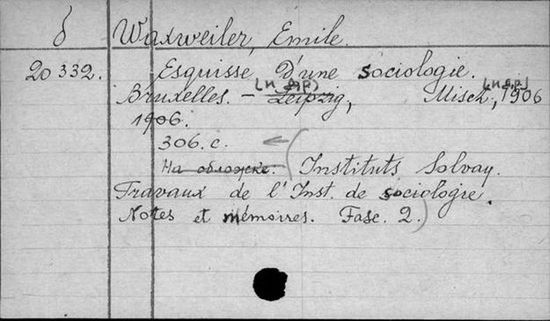 б Waxweiler, Emile.
20332. Esquisse d'une sociologie.
(и др) (и др)
Bruxelles. – Leipzig, Misch, 1906
1906.
306. с.
На обложке: (Instituts Solvay.
Travaux de l'Inst. de sociologie.
Notes et mémoires. Fasc. 2.)